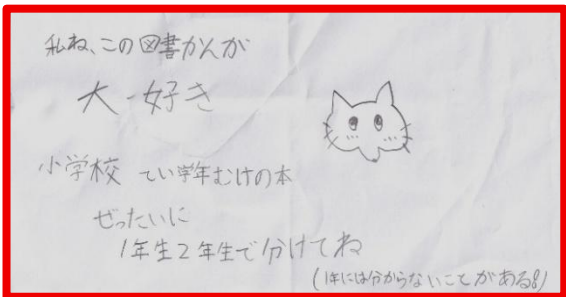 私ね、この図書かんが
大好き
小学校 てい学年むけの本
ぜったいに
1年生2年生で分けてね
(1年には分からないことがある!)